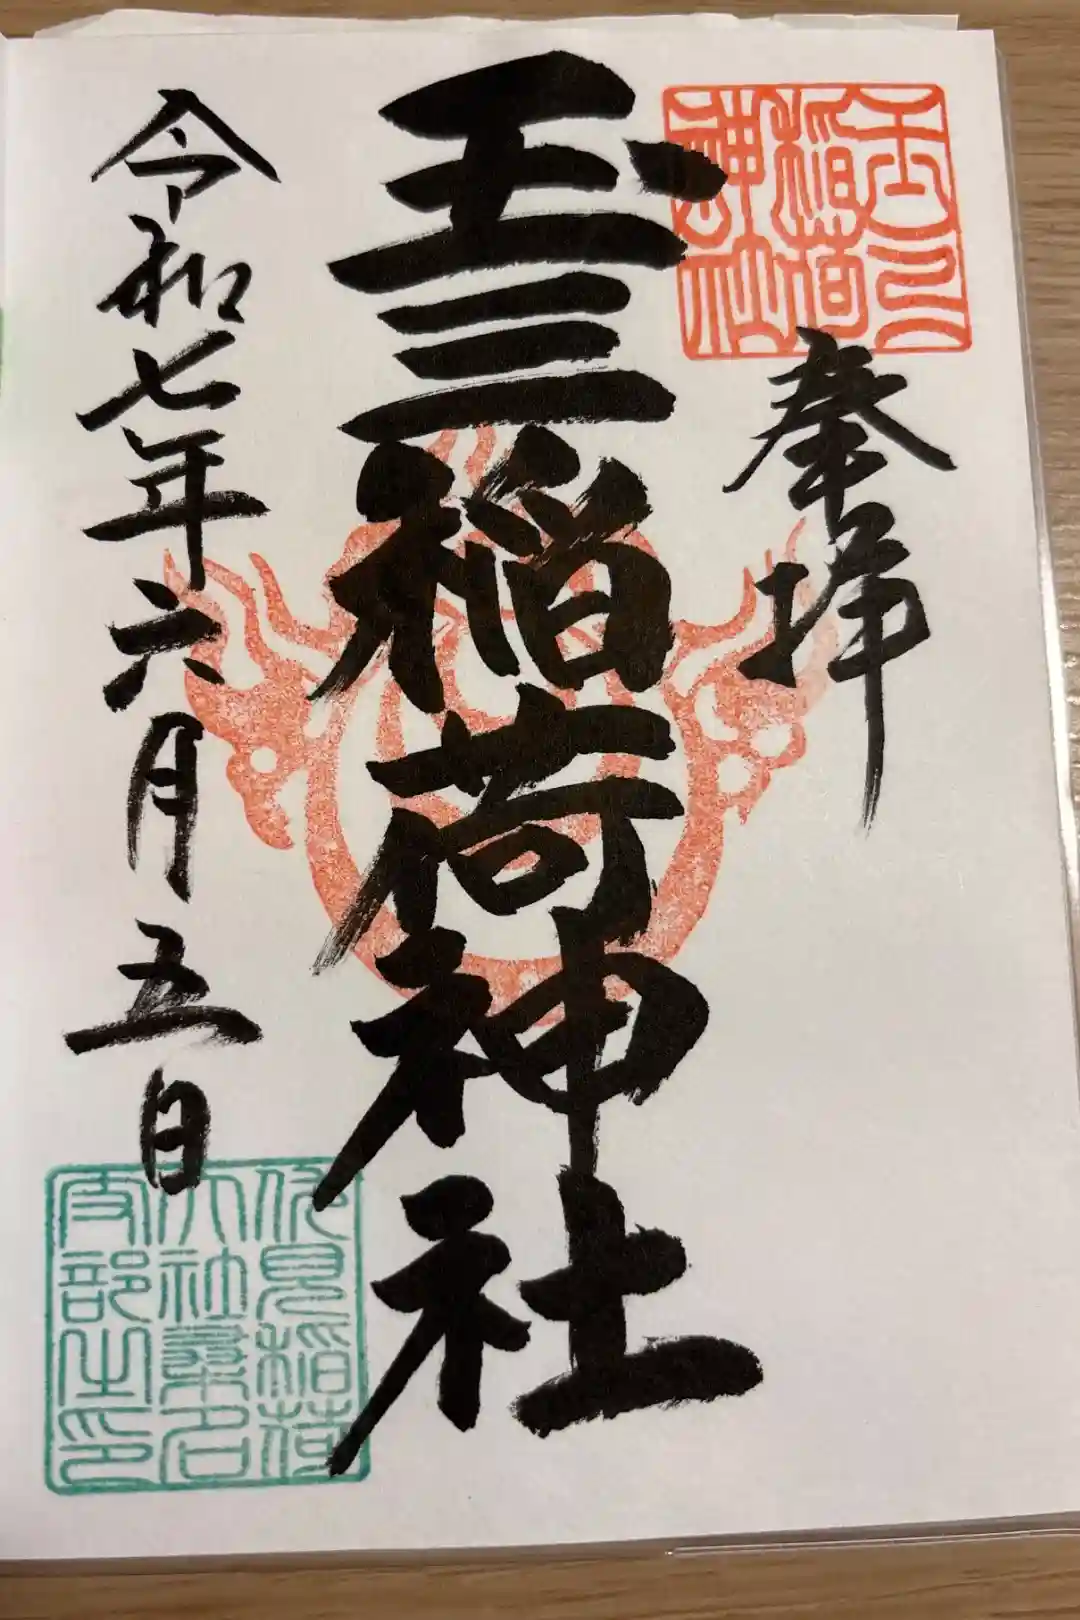 玉三
稲荷
神社
奉拝
玉三稲荷神社
令和七年六月五日
伏見稲荷
大社桑名
支部之印